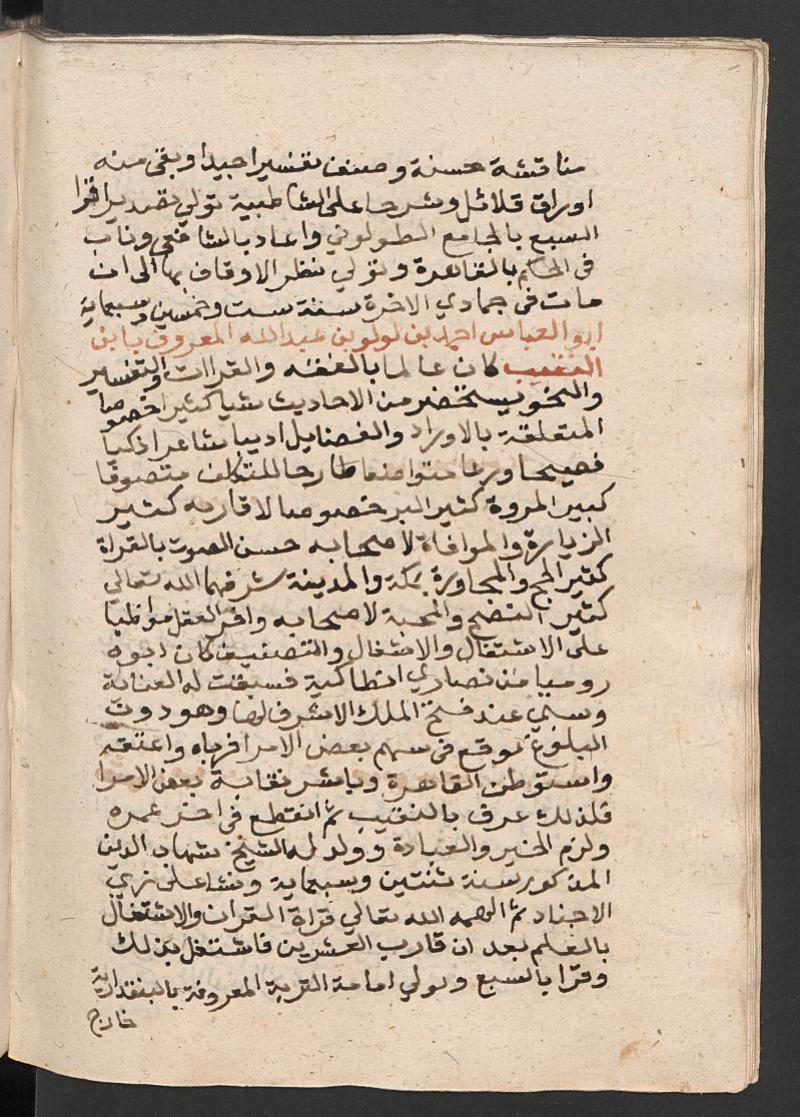 مناقشة حسنة وصنف تفسيرا جيدا وبقي منه
اوراق قلائل وشرحا على الشاطبية تولي تصدير اقرا
السبع بالجامع الطولوني واعاد بالشافعي وناب
في الحكم بالقاهرة وتولي نظر الاوقاف بها الى ان
مات في جمادي الاخرة سنة ست وخمسين وسبماية
ابو العباس احمد بن لولو بن عبد الله المعروف بابن
النقيب كان عالما بالفقه والقراات والتفسير
والنحو يستحضر من الاحاديث شيا كثيرا خصوصا
المتعلقة بالاوراد والفضايل اديبا شاعرا ذكيا
فصيحا ورعا متواضعا طارحا للتكلف متصوفا
كبير المروة كثير البر خصوصا لاقاربه كثير
الزيارة والموافاة لاصحابه حسن الصوت بالقراة
كثير الحج والمجاورة بمكة والمدينة شرفهما الله تعالي
كثير النصح والمحبة لاصحابه وافر العقل مواظبا
على الاشتغال والاشغال والتصنيف كان ابوه
روميا من نصاري انطاكية فسبقت له العناية
وسبي عند فتح الملك الاشرف لها وهو دون
البلوغ فوقع في سهم بعض الامرا فرباه واعتقه
واستوطن القاهرة وباشر نقابة بعض الامرا
فلذلك عرف بالنقيب ثم انقطع في اخر عمره
ولزم الخير والعبادة وولد له الشيخ شهاب الدين
المذكور سنة ثنتين وسبماية ونشا على زي
الاجناد ثم الهمه الله تعالي قراة القران والاشتغال
بالعلم بعد ان قارب العشرين فاشتغل بذلك
وقرا بالسبع وتولي امامة التربة المعروفة بالبندقدارية
خارج